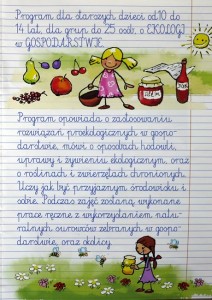 Program dla starszych dzieci od 10 do
14 lat, dla grup do 25 osób, o EKOLOGI
w GOSPODARSTWIE.
Program opowiada o zastosowaniu
rozwiązań proekologicznych w gospo-
darstwie, mówi o sposobach hodowli,
uprawy i żywieniu ekologicznym, oraz
o roślinach i zwierzętach chronionych.
Uczy jak być przyjaznym środowisku i
sobie. Podczas zajęć zostaną, wykonane
prace ręczne z wykorzystaniem natu-
ralnych surowców zebranych w gospo-
darstwie, oraz okolicy.